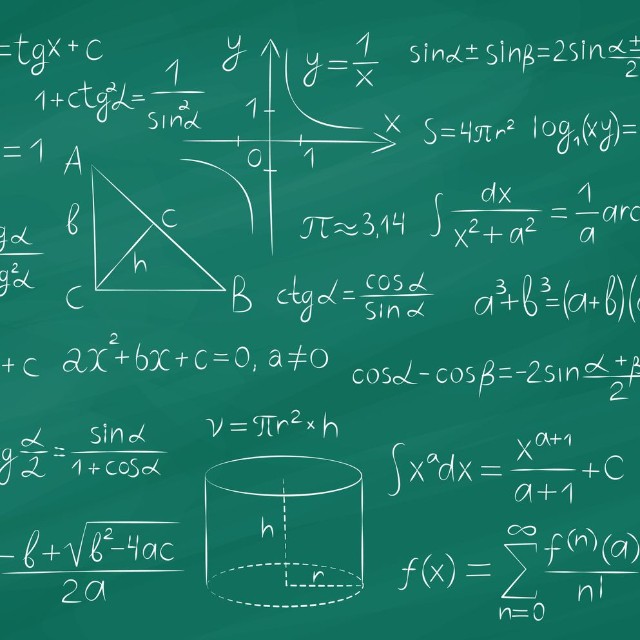 =tgx+c
1+ctg²α=1/sin²α
y
y=1/x
sinα±sinβ=2sin α±/2
1
x
0
1
S=4πr²
log₁(xy)=
=1
A
b
c
h
C
B
gα/g²α
π≈3,14
∫dx/(x²+a²)=1/a arc
ctgα=cosα/sinα
a³+b³=(a+b)(
+c
2x²+bx+c=0, a≠0
cosα-cosβ=-2sin α+β/2
g α/2=sinα/(1+cosα)
v=πr²×h
h
r
∫xᵃdx=xᵃ⁺¹/(a+1)+C
-b+√(b²-4ac)/2a
f(x)=∑ n=0 ∞ f⁽ⁿ⁾(a)/n!